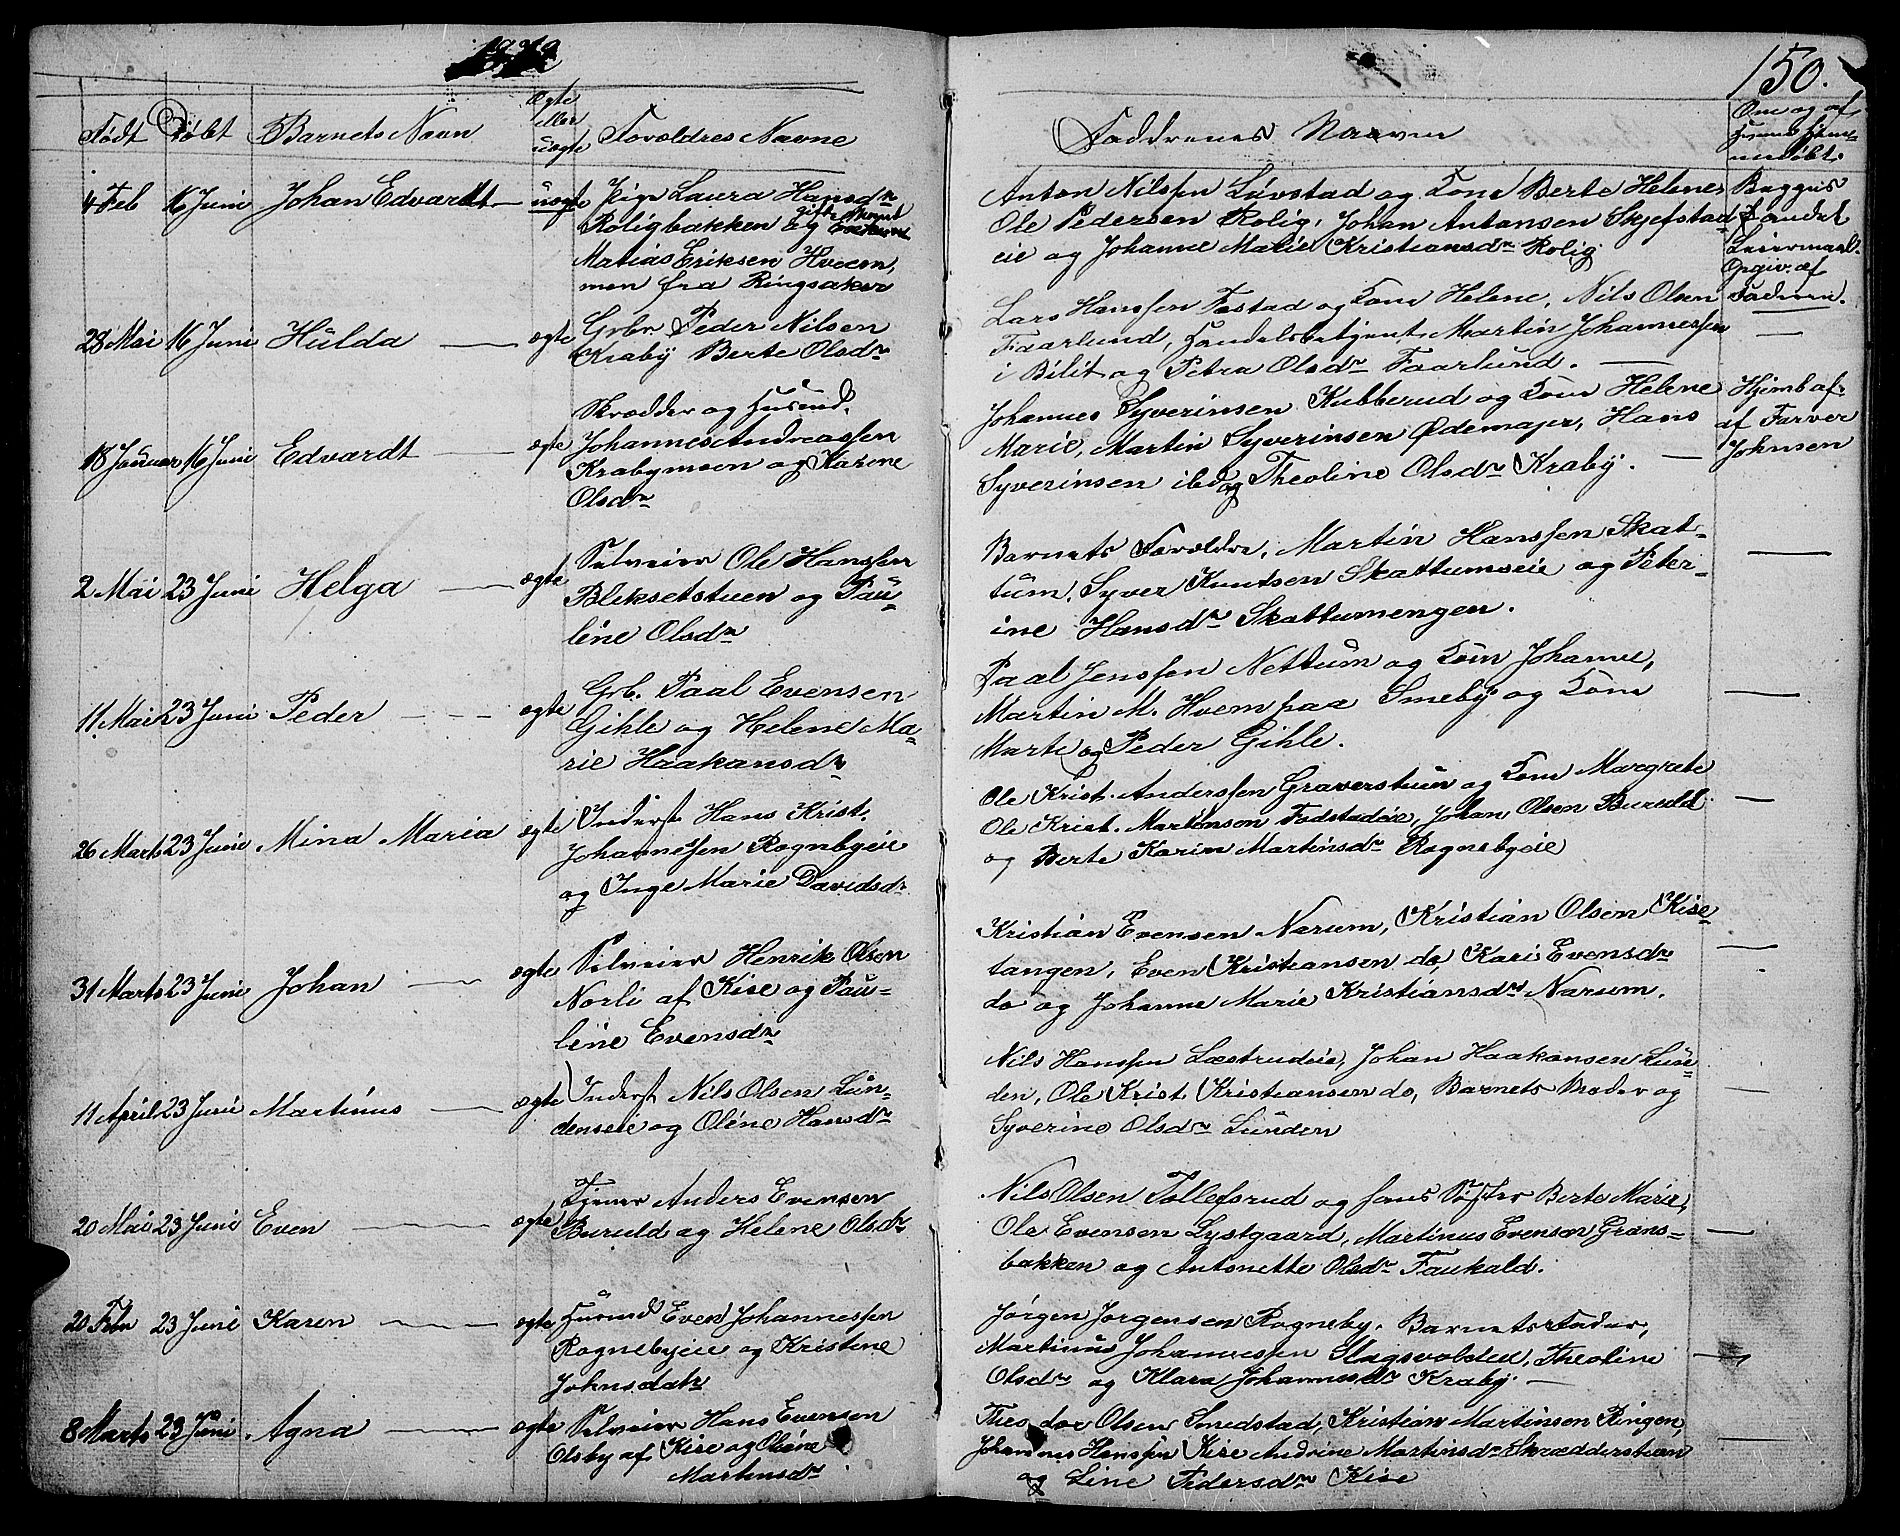 150.
Født Døbt Barnets Navn Ægte eller uægte Forældres Navne
4 Feb 16 Juni Johan Edvardt uægte Pige Laura Hansdr
Roligbakken og gift
Matias Eriksen Hveem,
men fra Ringsaker
28 Mai 16 Juni Hulda ægte Grbr Peder Nilsen
Kraby Berte Olsdr
Skrædder og Husmd.
18 Januar 16 Juni Edvardt ægte Johannes Andreassen
Krabymoen og Karene
Olsdr
2 Mai 23 Juni Helga ægte Selveier Ole Hanssen
Bleksetstuen og Pau-
line Olsdr
11 Mai 23 Juni Peder ægte Grb. Paal Evensen
Gihle og Helene Ma-
rie Haakansdr
26 Marts 23 Juni Mina Maria ægte Inderst Hans Krist.
Johannessen Rognebyeie
og Inge Marie Davidsdr
31 Marts 23 Juni Johan ægte Selveier Henrik Olsen
Norli af Kise og Pau-
line Evensdr
11 April 23 Juni Martinus ægte Inderst Nils Olsen Lun-
denseie og Oline Hansdr
20 Mai 23 Juni Even ægte Tjener Anders Evensen
Buruld og Helene Olsdr
20 Febr 23 Juni Karen ægte Husmd Even Johannessen
Rognebyeie og Kristine
Johnsdatr
8 Marts 23 Juni Agna ægte Selveier Hans Evensen
Olsby af Kise og Oline
Martinsdr
Faddrenes Navn
Om og af
hvem hjem-
medøbt.
Anton Nilssen Lövstad og Kone Berte Helene,
Ole Pedersen Rolig, Johan Antonsen Skjefstad
eie og Johanne Marie Kristiansdr Rolig
Begges
Leiermaal.
Opgiv. af
Fadren.
Lars Hanssen Fostad og Kone Helene, Nils Olsen
Faarlund, Handelsbetjent Martin Johannessen
i Bilit og Petra Olsdr Faarlund.
Johannes Syverinsen Kubberud og Kone Helene
Marie, Martin Syverinsen Ødemajer, Hans
Syverinsen ibd og Theoline Olsdr Kraby.
Hjemb af.
af Farver
Johnsen
Barnets Forældre, Martin Hanssen Skat-
tum, Syver Knutsen Skattumseie og Peter-
ine Hansdr Skattumengen.
Paal Jenssen Nettum og Kone Johanne,
Martin M. Hvem paa Smeby og Kone
Marte og Peder Gihle.
Ole Krist. Anderssen Graverstuen og Kone Margrete
Ole Krist. Martinson Fodstadeie, Johan Olsen Buruld
og Berte Karin Martinsdr Rognebyeie
Kristian Evensen Narum, Kristian Olsen Kise-
tangen, Even Kristiansen do, Kari Evensdr
do og Johanne Marie Kristiansdr Narum.
Nils Hanssen Læstrudeie, Johan Haakansen Lun-
den, Ole Krist Kristiansen do, Barnets Broder og
Syverine Olsdr Lunden
Nils Olsen Tollefsrud og hans Søster Berte Marie,
Ole Evensen Lystgaard, Martinus Evensen Grans-
bakken og Antonette Olsdr Faukald.
Jørgen Jørgensen Rogneby, Barnets Fader,
Martinus Johannessen Slagsvolden, Theoline
Olsdr og Klara Johannesdr Kraby.
Theodor Olsen Smedstad, Kristian Martinsen Ringen,
Johannes Hanssen Kise Andrine Martinsdr Skrædderstuen
og Line Pedersdr Kise